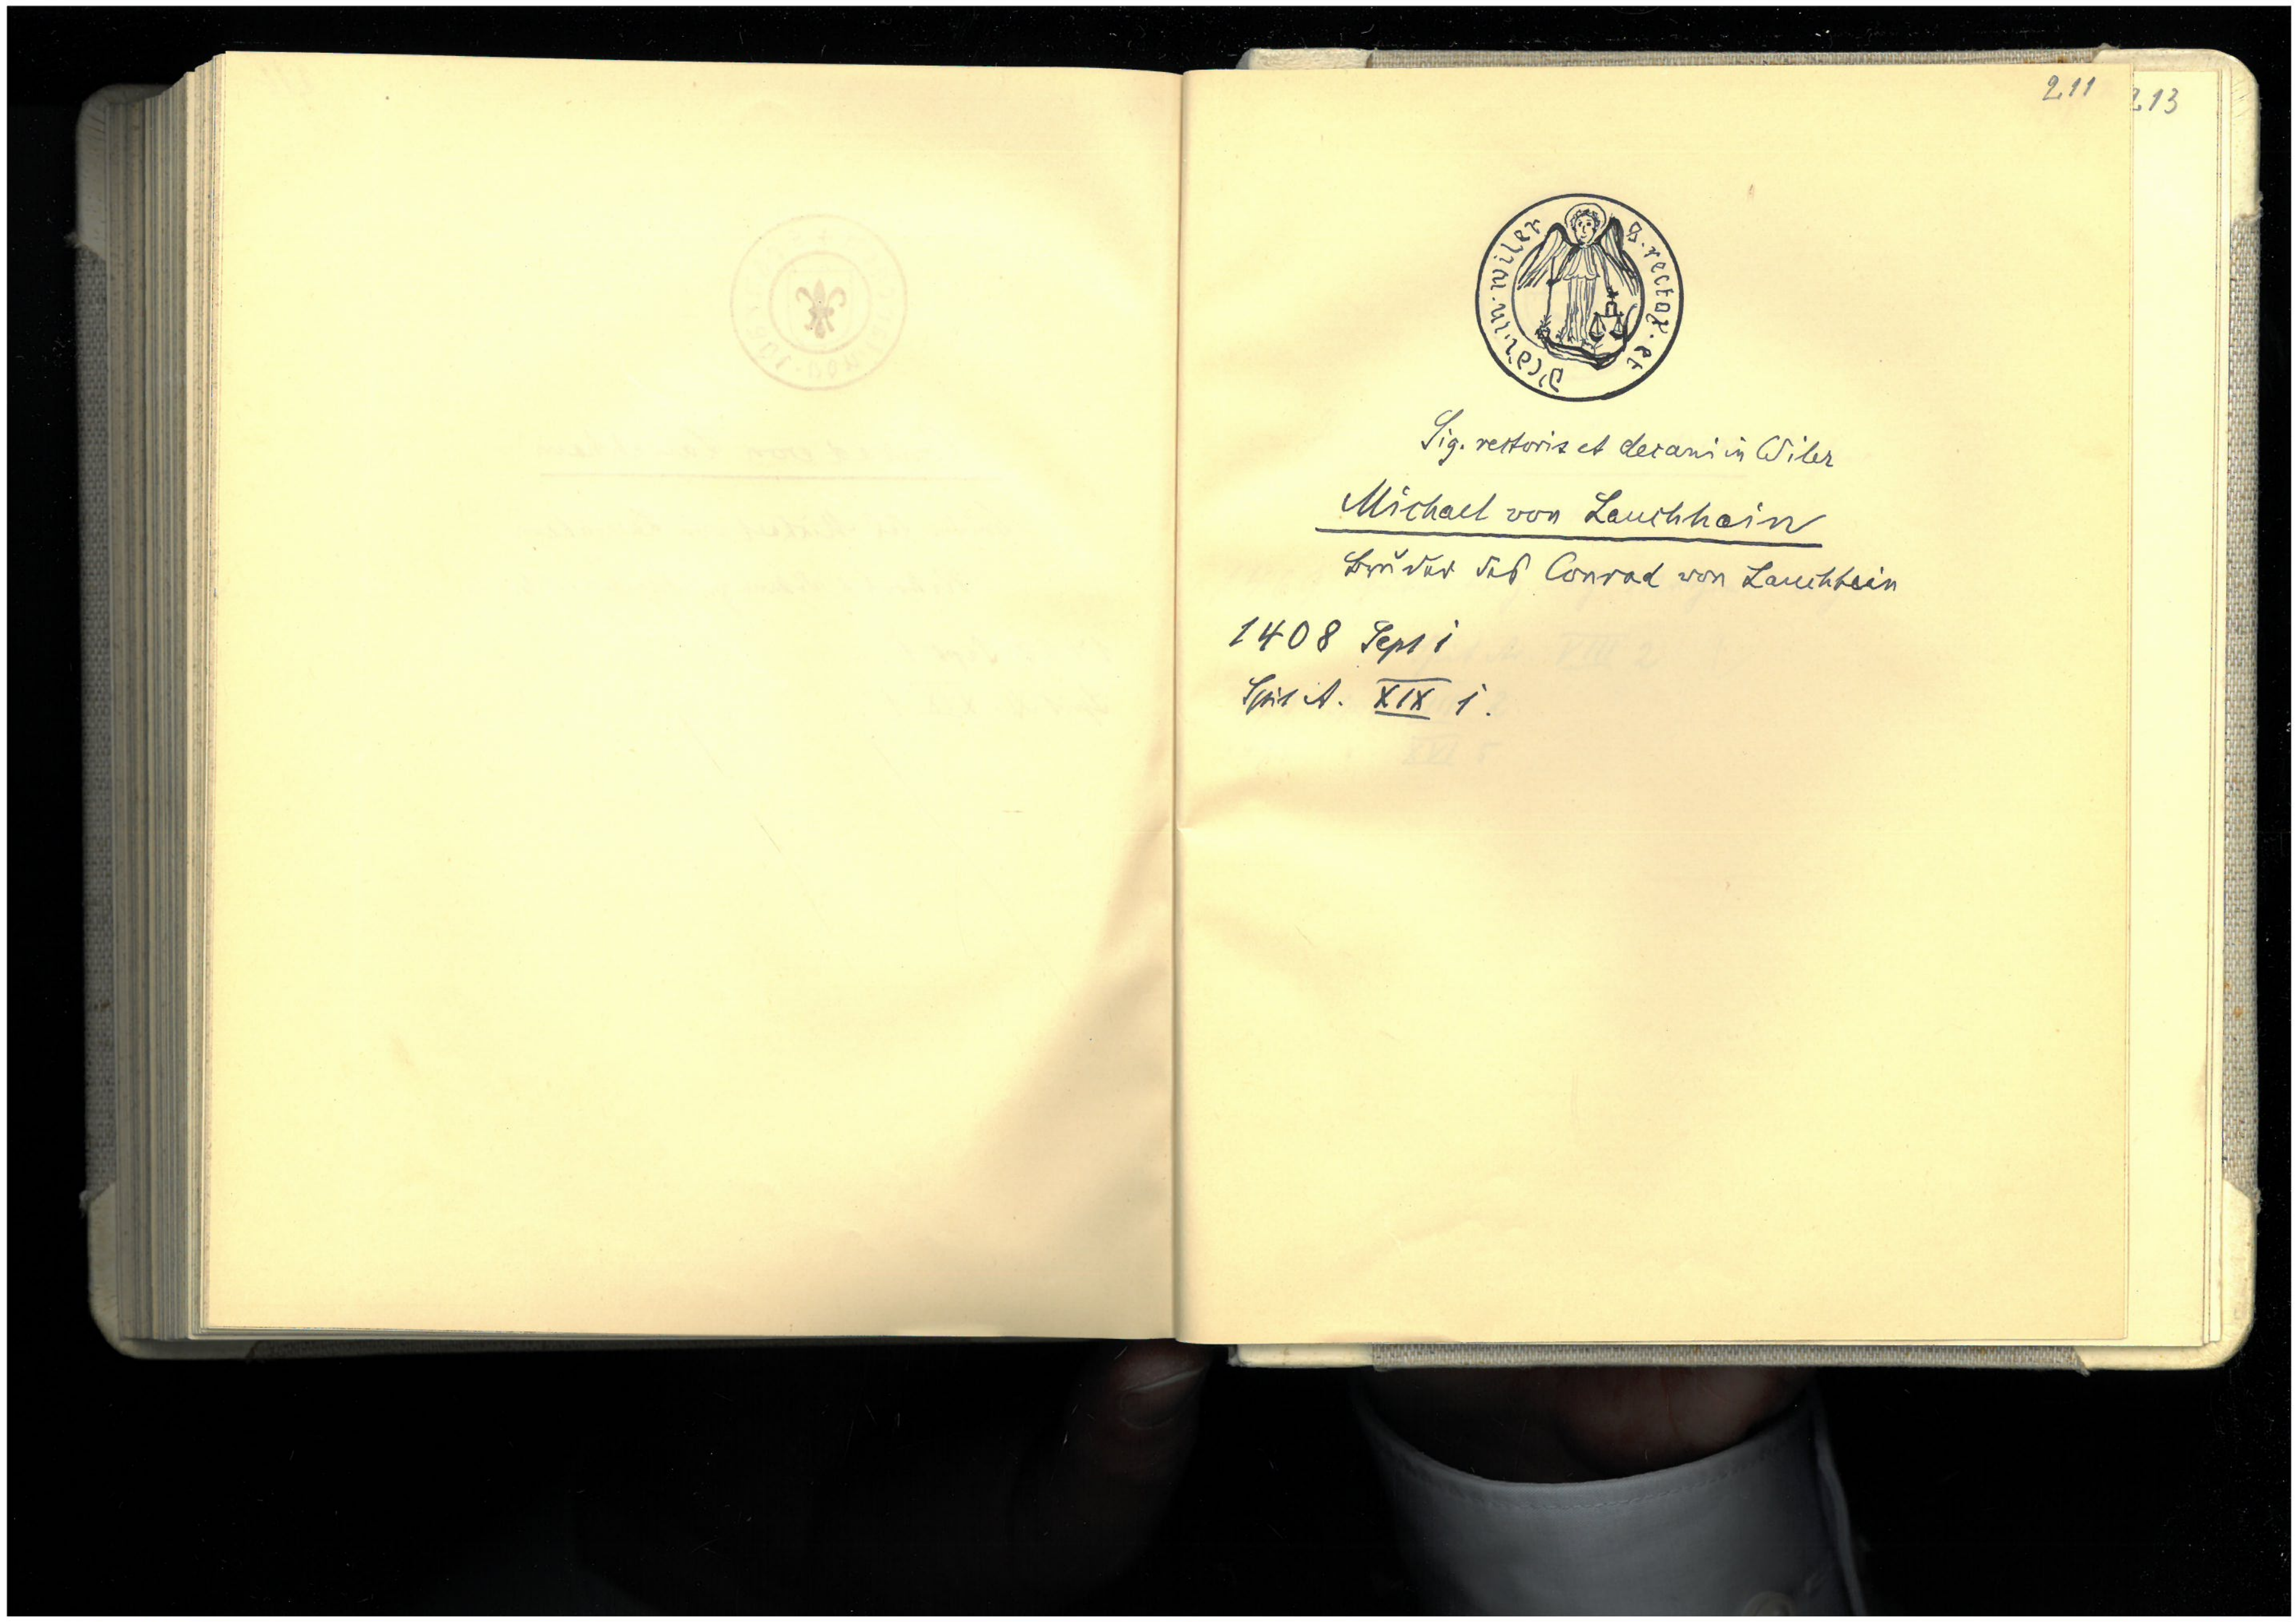 211
213
S · rector · et · decan · in · wiler
Sig. rectoris et decani in Wiler
Michael von Lauchhein
Brŭder des Conrad von Lauchhein
1408 Sept 1
Spit A. XIX 1.